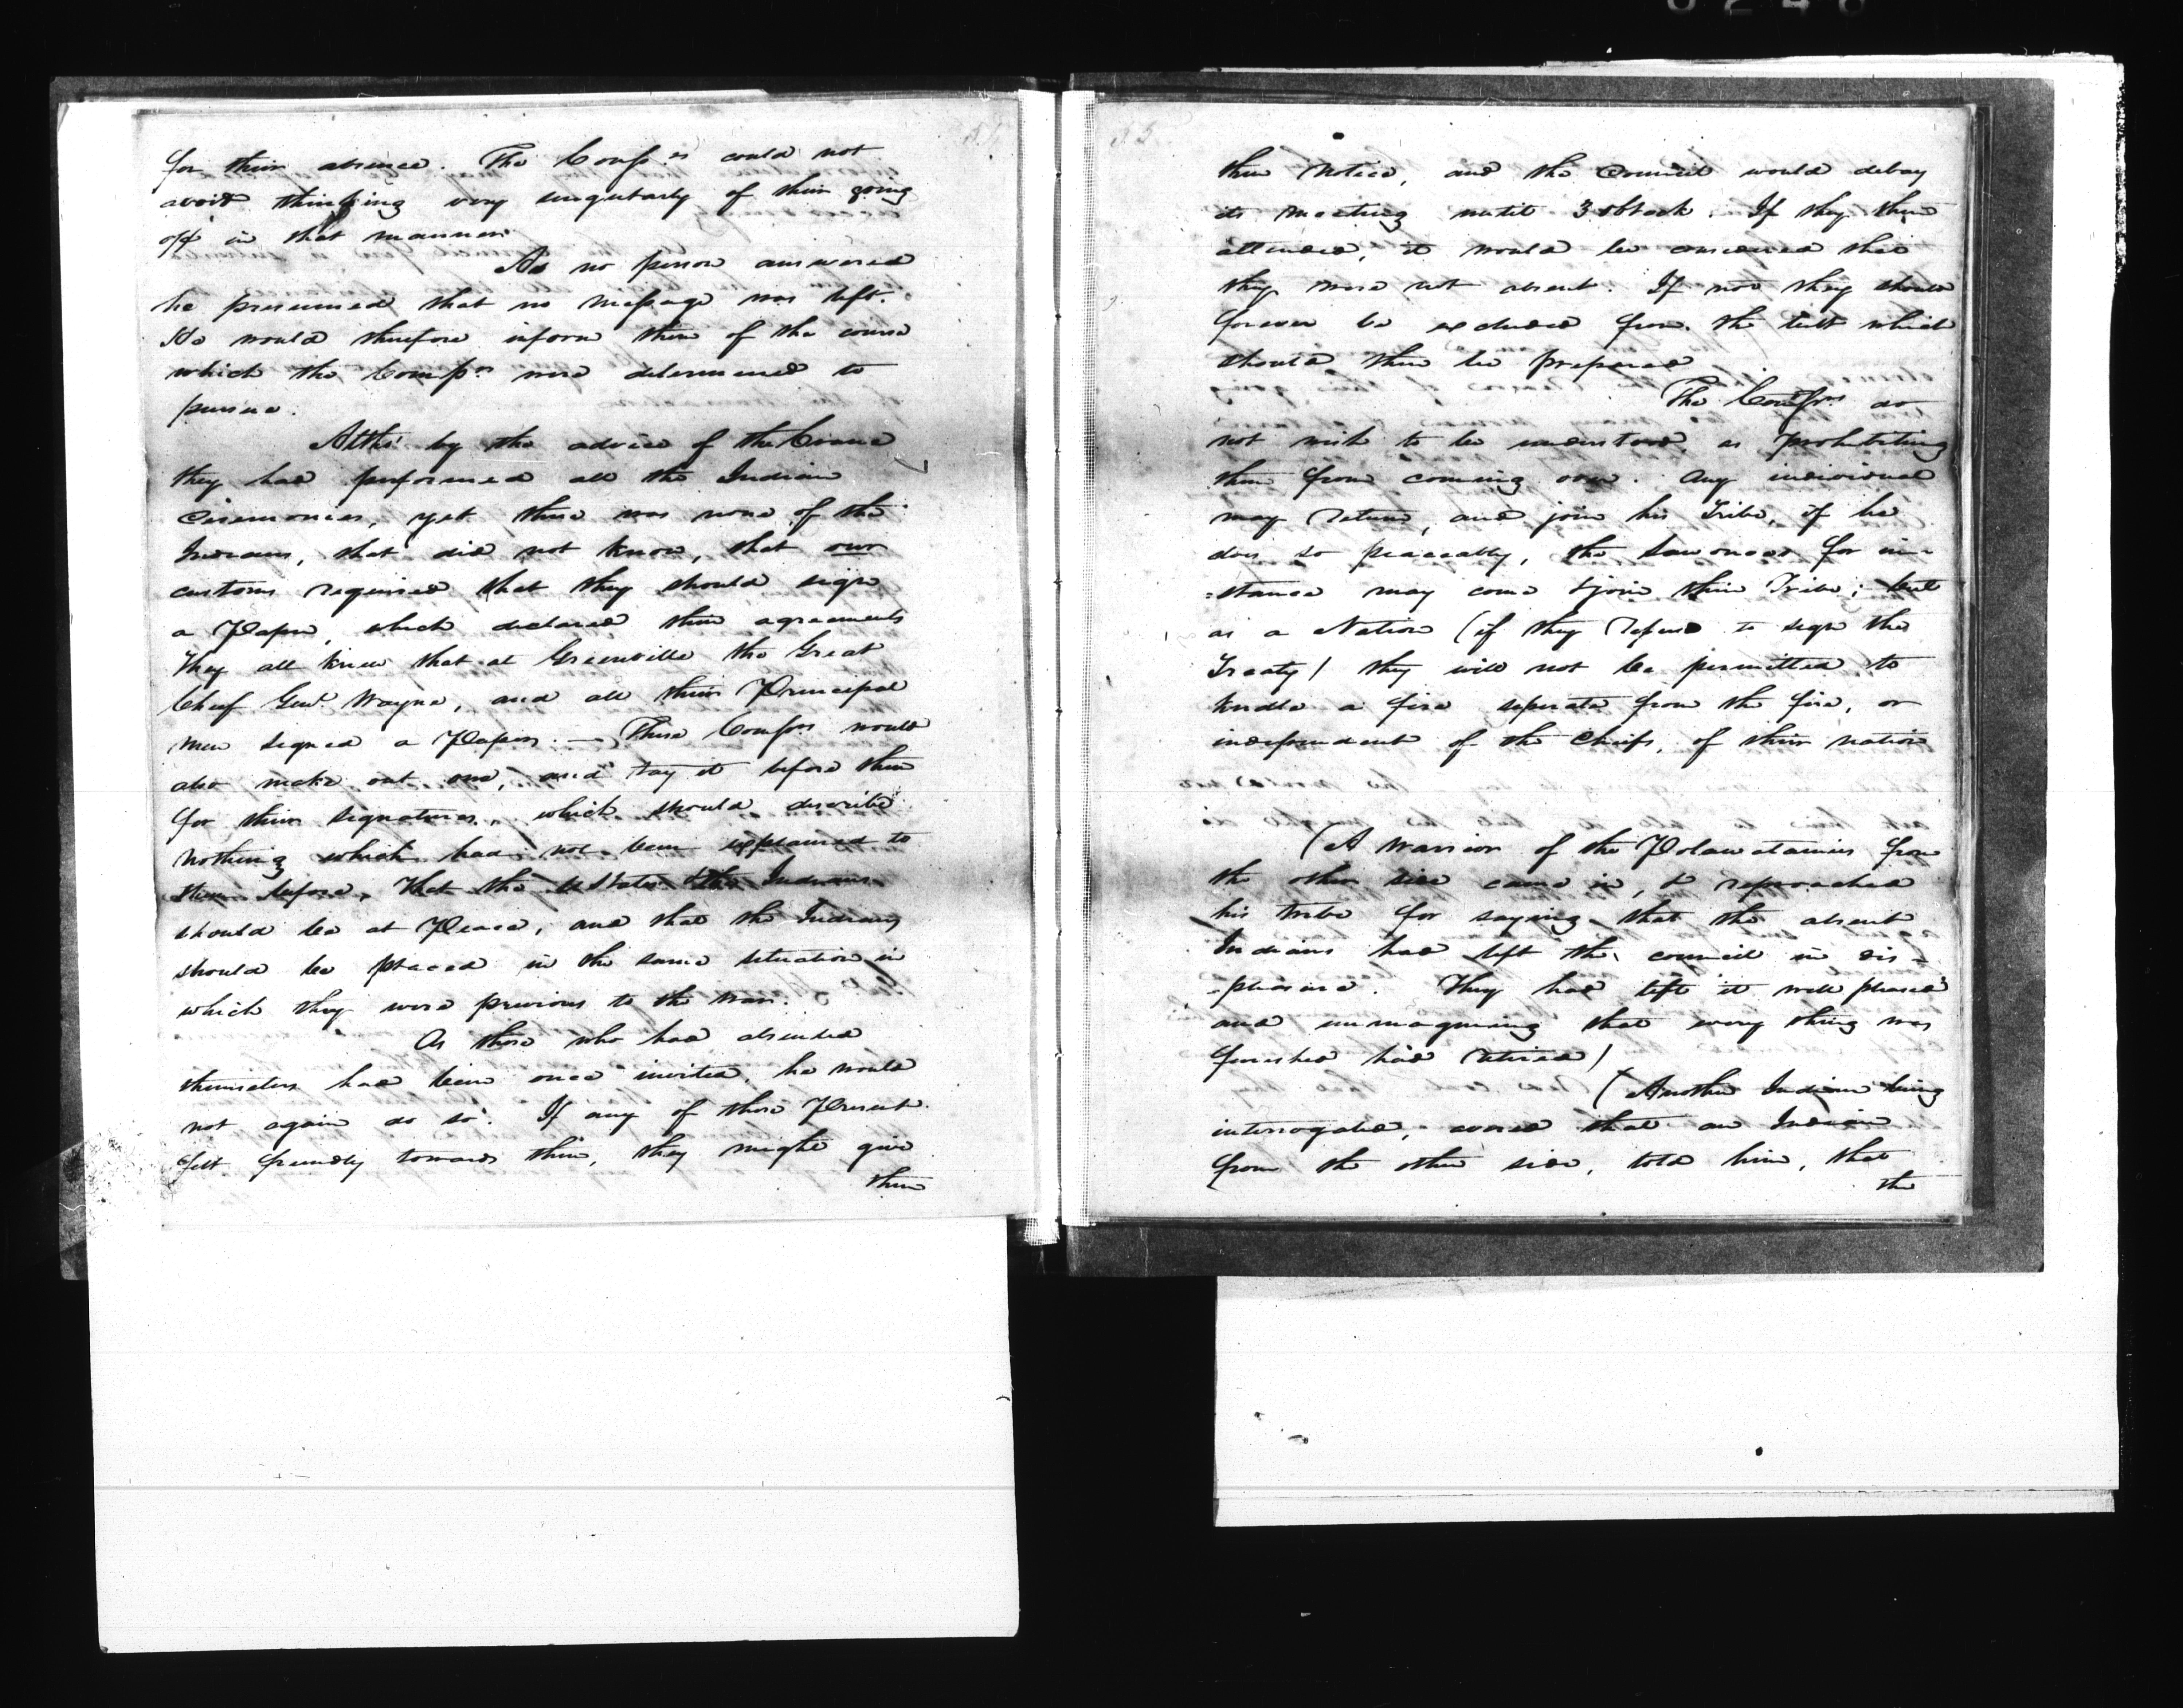 for their absence. The Comssrs could not
avoid thinking very singularly of their going
off in that manner
As no person answered
he presumed that no message was left.
He would therefore inform them of the course
which the Comssrs were determined to
pursue.
Altho' by the advice of the Crane
they had performed all the Indian
Ceremonies, yet there was none of the
Indians, that did not know, that our
customs required that they should sign
a Paper, which declared their agreements
They all knew that at Greenville the Great
Chief Genl Wayne, and all their Principal
men signed a Paper. — These Comssrs would
also make out one, and lay it before them
for their signatures, which should describe
nothing which had not been explained to
them before, that the U States & the Indians
should be at Peace, and that the Indians
should be placed in the same situation in
which they were previous to the war.
As those who had absented
themselves had been once invited, he would
not again do so. If any of those Present
felt friendly towards them, they might give
them
55
them notice, and the Council would delay
its meeting until 3 oblock. If they then
attended, it would be considered that
they were not absent. If not they should
forever be excluded from the
should then be prepared
The Comssrs do
not wish to be understood, as prohibiting
them from coming over. Any individual
may return, and join his Tribe, if he
does so peaceably, the for in-
=stance may come & join their Tribe; but
as a Nation (if they refuse to sign the
Treaty) they will not be permitted to
kindle a fire seperate from the fire, or
independent of the Chiefs, of their nation
(A Warrior of the Potawatamies from
the other side came in, & reproached
his tribe for saying that the absent
Indians had left the council in dis-
-pleasure. They had left it well pleased
and immagining that every thing was
finished had retired)
(Another Indian being
interrogated, avered that an Indian
from the other side, told him, that
the